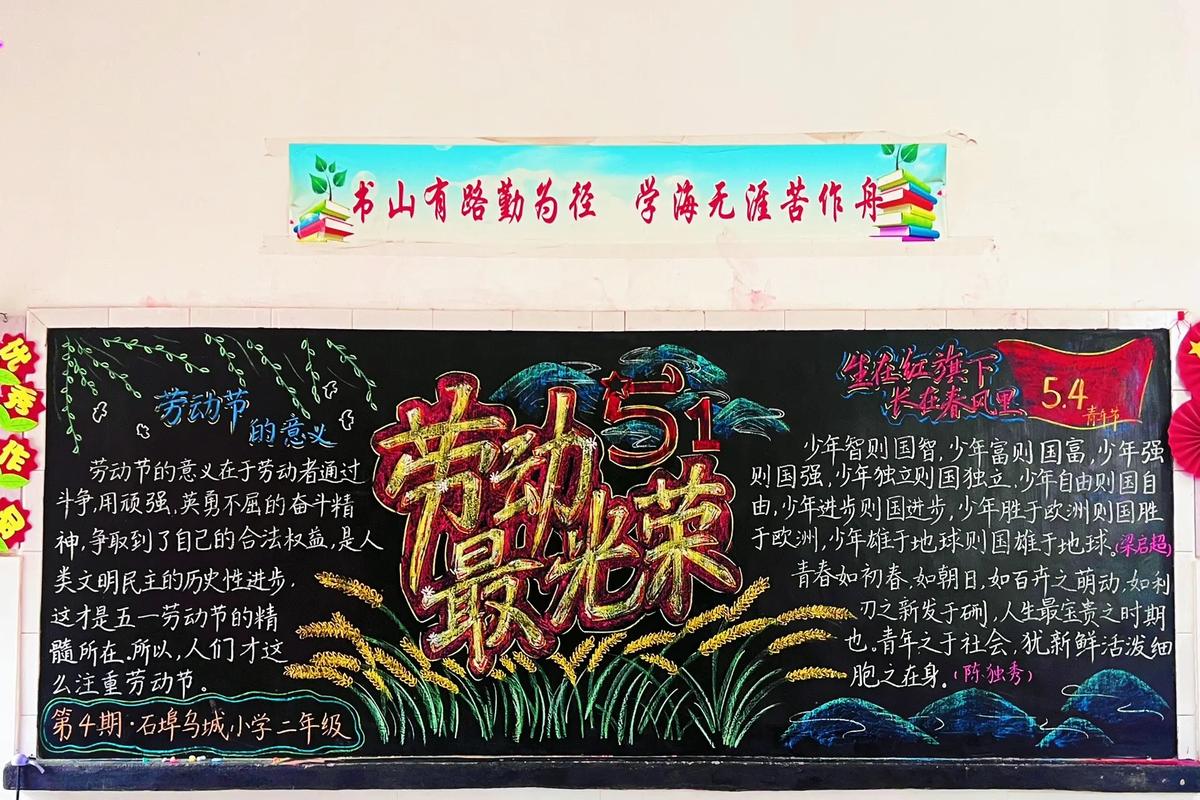 书山有路勤为径 学海无涯苦作舟
优秀作
劳动节
的意义
劳动节的意义在于劳动者通过
斗争,用顽强、英勇不屈的奋斗精
神,争取到了自己的合法权益,是人
类文明民主的历史性进步,
这才是五一劳动节的精
髓所在。所以,人们才这
么注重劳动节。
第4期·石埠乌城小学二年级
51
劳动
最光荣
生在红旗下
长在春风里
5.4
青年节
少年智则国智,少年富则国富,少年强
则国强,少年独立则国独立,少年自由则国自
由,少年进步则国进步,少年胜于欧洲则国胜
于欧洲,少年雄于地球则国雄于地球。(梁启超)
青春如初春,如朝日,如百卉之萌动,如利
刃之新发于硎,人生最宝贵之时期
也。青年之于社会,犹新鲜活泼细
胞之在身。(陈独秀)